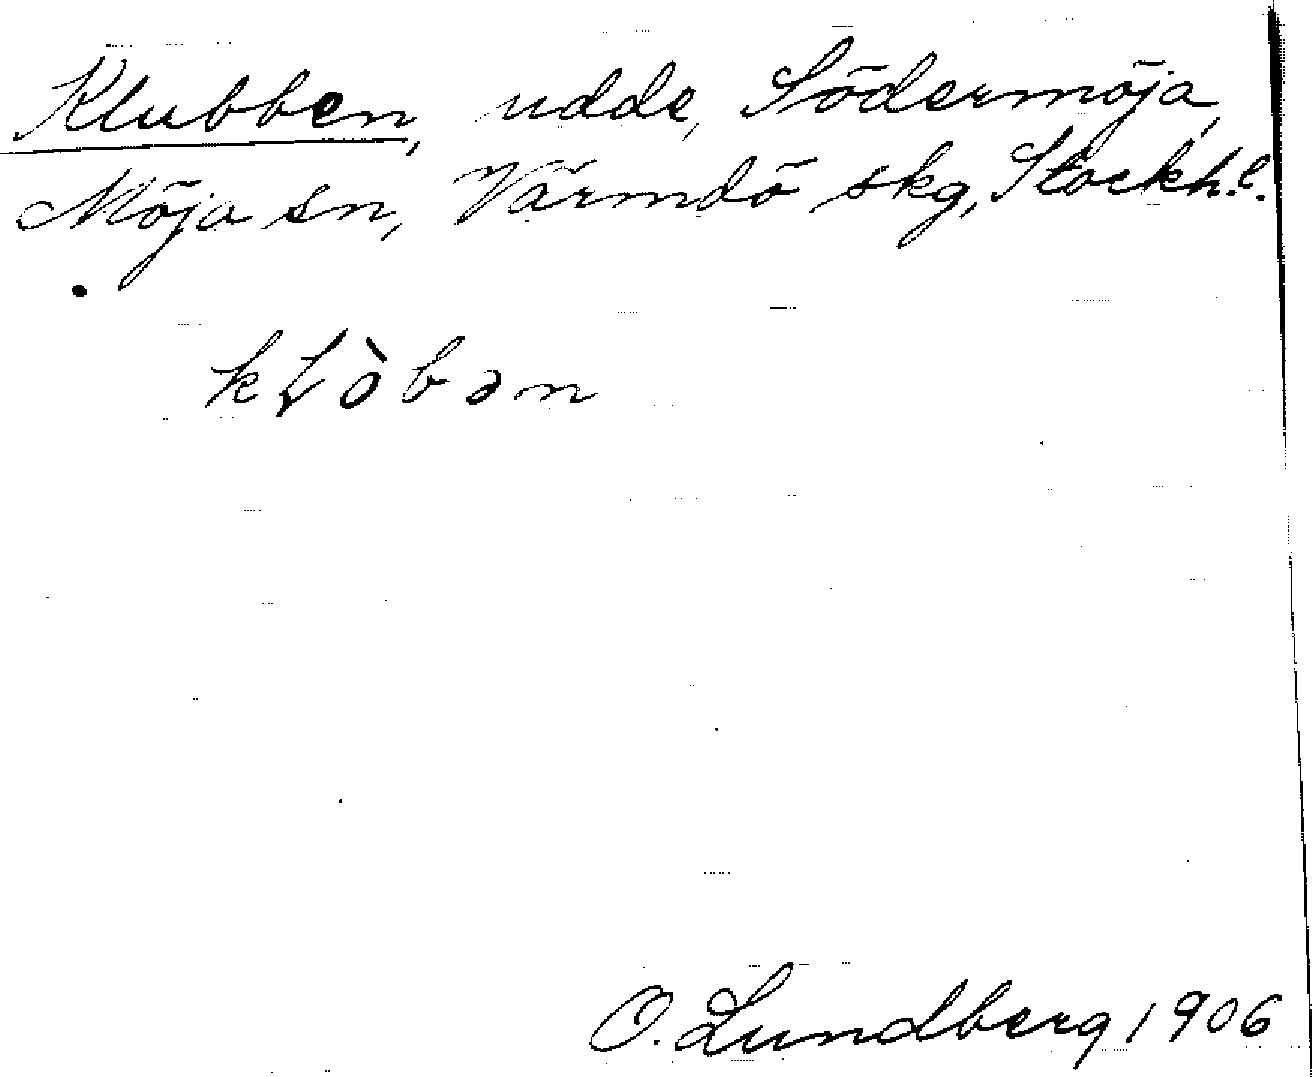 Klubben, udde, Södermöja,
Möja sn, Värmdö skg, Stockh. l.
kɫòbən
O. Lundberg 1906